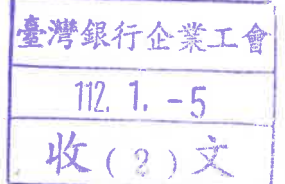 臺灣銀行企業工會
112. 1. -5
收(2)文